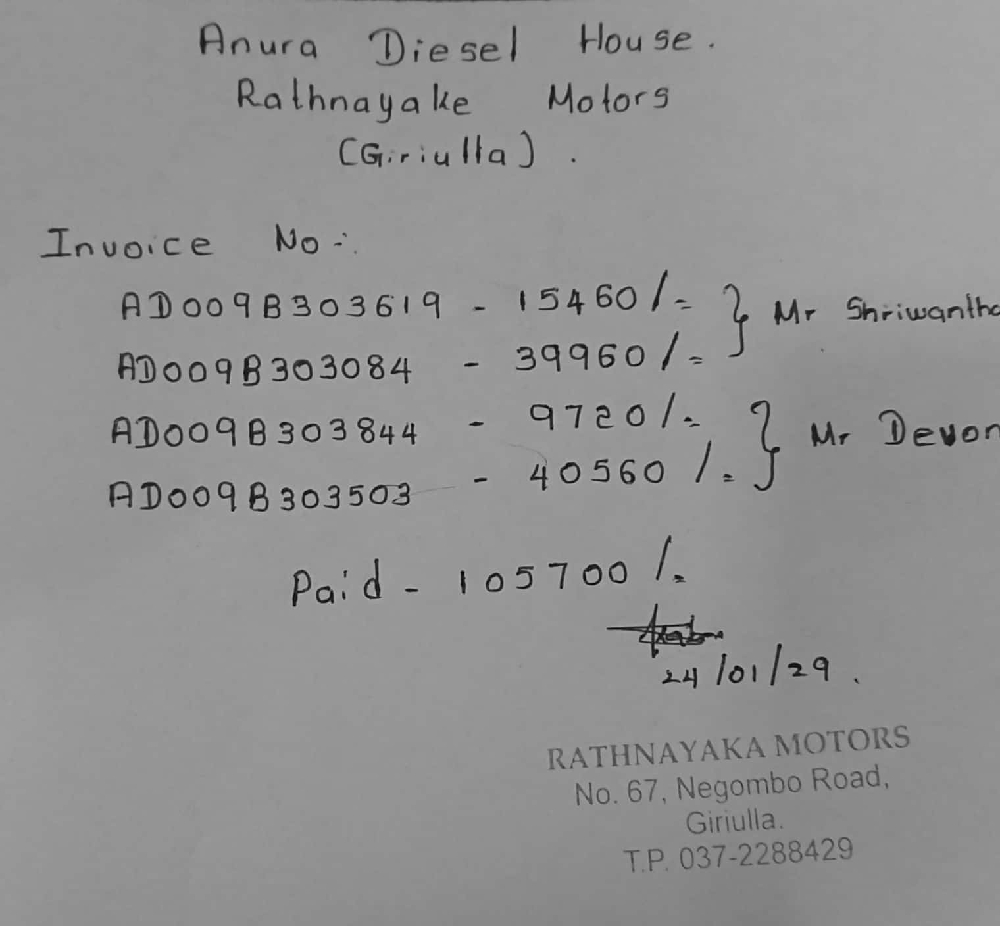 Anura Diesel House.
Rathnayake Motors
(Giriulla).
Invoice No :-
AD009B303619 - 15460/= } Mr Shriwantha
AD009B303084 - 39960/=
AD009B303844 - 9720/= } Mr Devon
AD009B303503 - 40560/=
Paid - 105700/=
24/01/29.
RATHNAYAKA MOTORS
No. 67, Negombo Road,
Giriulla.
T.P. 037-2288429